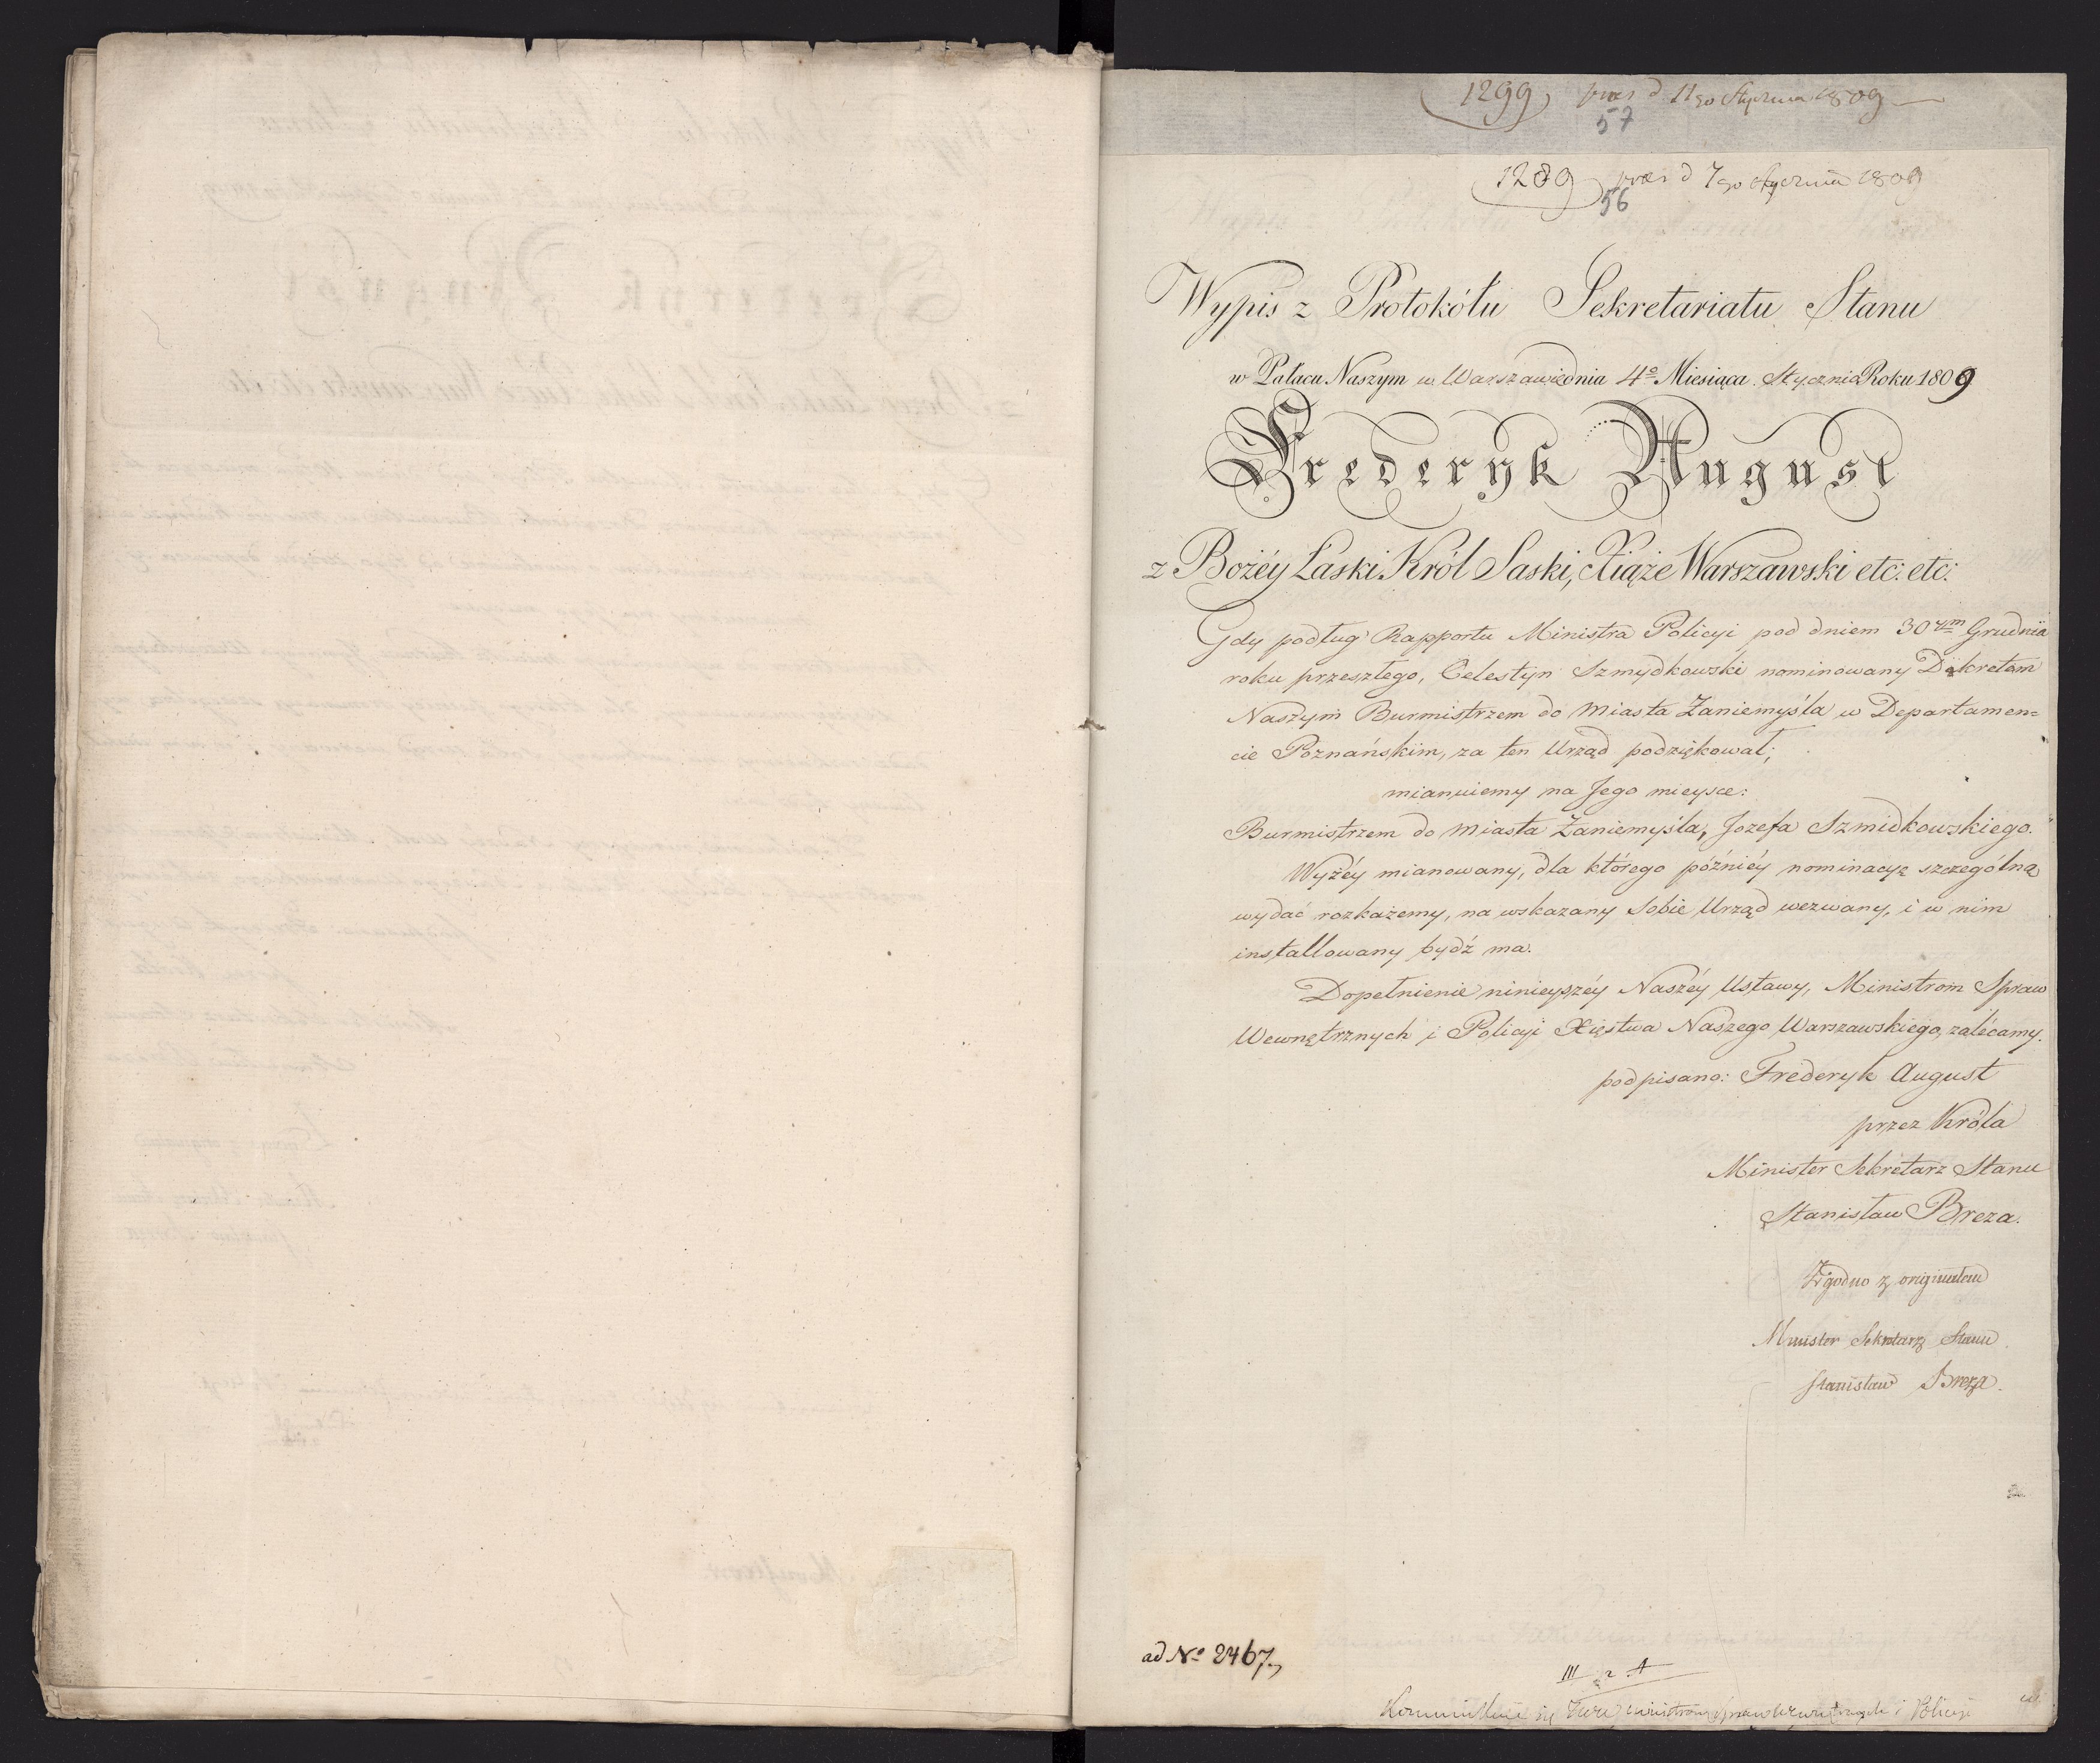 1299 praes d 11go Stycznia 1809
57
1289 praes d 7go Stycznia 1809
56
Wypis z Protokółu Sekretariatu Stanu
w Pałacu Naszym w Warszawie dnia 4º Miesiąca Stycznia Roku 1809
Frederyk August
z Bożéy Łaski Król Saski, Xiąże Warszawski etc: etc:
Gdy podług Rapportu Ministra Policyi pod dniem 30ym Grudnia
roku przeszłego, Celestyn Szmydkowski nominowany Dekretem
Naszym Burmistrzem do Miasta Zaniemyśla w Departamen=
cie Poznańskim, za ten Urząd podziękował;
mianuiemy na Jego mieysce:
Burmistrzem do Miasta Zaniemyśla, Jozefa Szmidkowskiego.
Wyżéy mianowany, dla którego późniéy nominacyę szczególną
wydać rozkażemy, na wskazany Sobie Urząd wezwany, i w nim
installowany bydź ma.
Dopełnienie ninieyszéy Naszéy Ustawy, Ministrom Spraw
Wewnętrznych i Policyi Xięstwa Naszego Warszawskiego, zalécamy.
podpisano: Frederyk August
przez Króla
Minister Sekretarz Stanu
Stanisław Breza.
Zgodno z originałem
Minister Sekretarz Stanu
Stanisław Breza.
ad Nº 2467.
III 2 A
się i Policyi